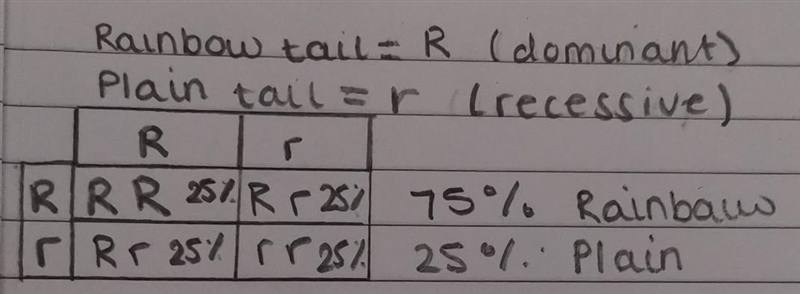 Rainbow tail = R (dominant)
Plain tail = r (recessive)
R r
R RR 25% Rr 25% 75% Rainbow
r Rr 25% rr 25% 25% Plain